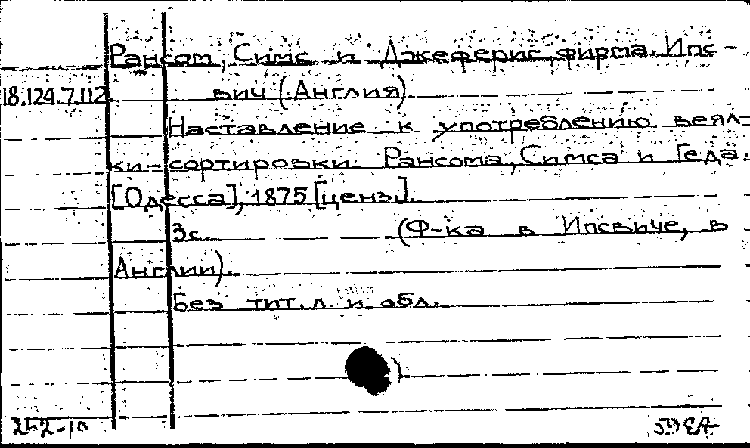 Рансом, Симс и Джеферис, фирма. Ипс-
18.124.7.112
вич (Англия).
Наставление к употреблению веял-
ки-сортировки Рансома, Симса и Геда.
[Одесса], 1875 [ценз.].
3с. (Ф-ка в Ипсвиче, в
Англии).
Без тит. л. и обл.